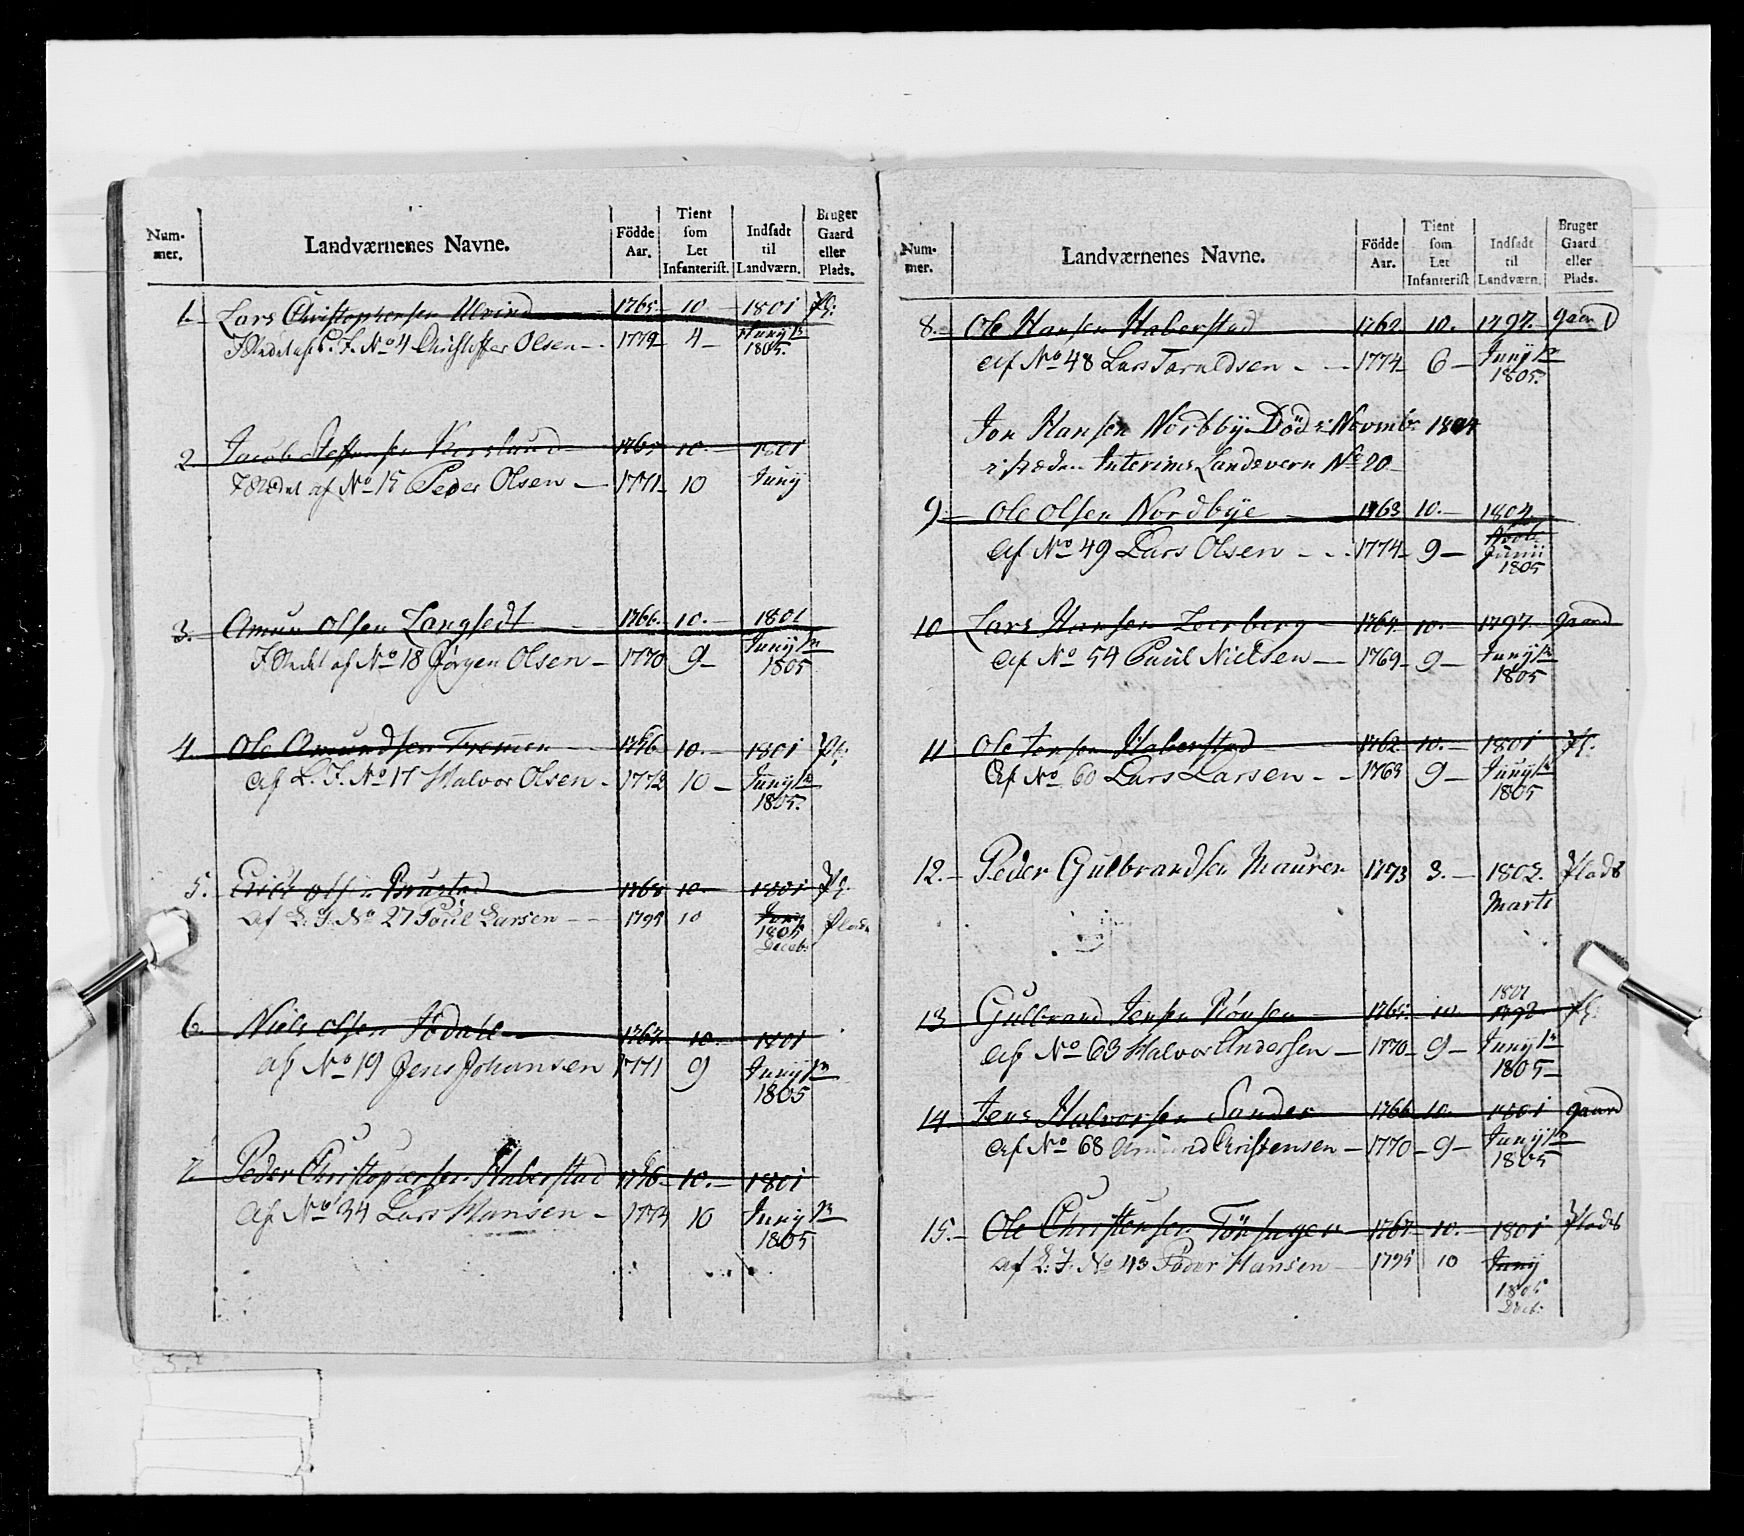 Num-
mer.
Landværnenes Navne.
Födde
Aar.
Tient
som
Let
Infanterist.
Indsadt
til
Landværn.
Bruger
Gaard
eller
Plads.
1. Lars Christophersen Ulvind 1765. 10. 1801 Pl:
Isteden af L. I. No 4 Christoffer Olsen 1779 4 Junij
1805.
2 Jacob Steffensen 1765 10. 1801
Istedet af No 15 Peder Olsen 1771 10 Junij
3. Amun Olsen Langsedt 1766. 10. 1801
Istedet af No 18 Jørgen Olsen 1770 9 Junij
1805
4. Ole Amundsen 10. 1801 Pl:
Af L. I. No 17 Halvor Olsen 1772 10 Junij
1805.
5. Erick Olsen Brustad 1765 10. 1801 Pl.
af L. I. No 27 Poul Larsen 10 Juny
1805 Plads
Decab:
6 Niels Olsen 1767. 10. 1801
af No 19 Jens Johansen 1771 9 Junij
1805
7. Peder Christophersen Haberstad 10. 1801
Af No 34 Lars Hansen 1773 10 Junij
1805
Num-
mer.
Landværnenes Navne.
Födde
Aar.
Tient
som
Let
Infanterist
Indsadt
til
Landværn.
Bruger
Gaard
eller
Plads.
8. Ole Hansen Haberstad 1762 10. 1797. gaard
Af No 48 Lars Taraldsen 1774 6 Junij
1805.
Jon Hansen Nordbÿe Död i Novmbr 1804
Interims Landevern No 20
9. Ole Olsen Nordbÿe 1763 10. 1804.
Af No 49 Lars Olsen 1774 9 Junii
1805
10 Lars Hansen Leerberg 1764 10. 1797. gaard
Af No 54 Paul Nielsen 1769 9 Junij
1805
11 Ole Jensen Haberstad 1762 10. 1801 Pl.
Af No 60 Lars Larsen 1769 9 Junij
1805
12. Peder Gulbrandsen Mauren 1773 3. 1803. Plads
Marts
1801
13 Gulbrand Jensen 1765 10. Pl:
Af No 63 Halvor Andersen 1770 9 Junij
1805
14. Jens Halvorsen Sander 1766 10. 1801 gaard
Af No 68 Amund Christensen 1770 9 Junij
1805
15. Ole Christensen 1767 10. 1801 Plads
af L. I. No 43 Peder Hansen 10 Junij
1805
Dec: